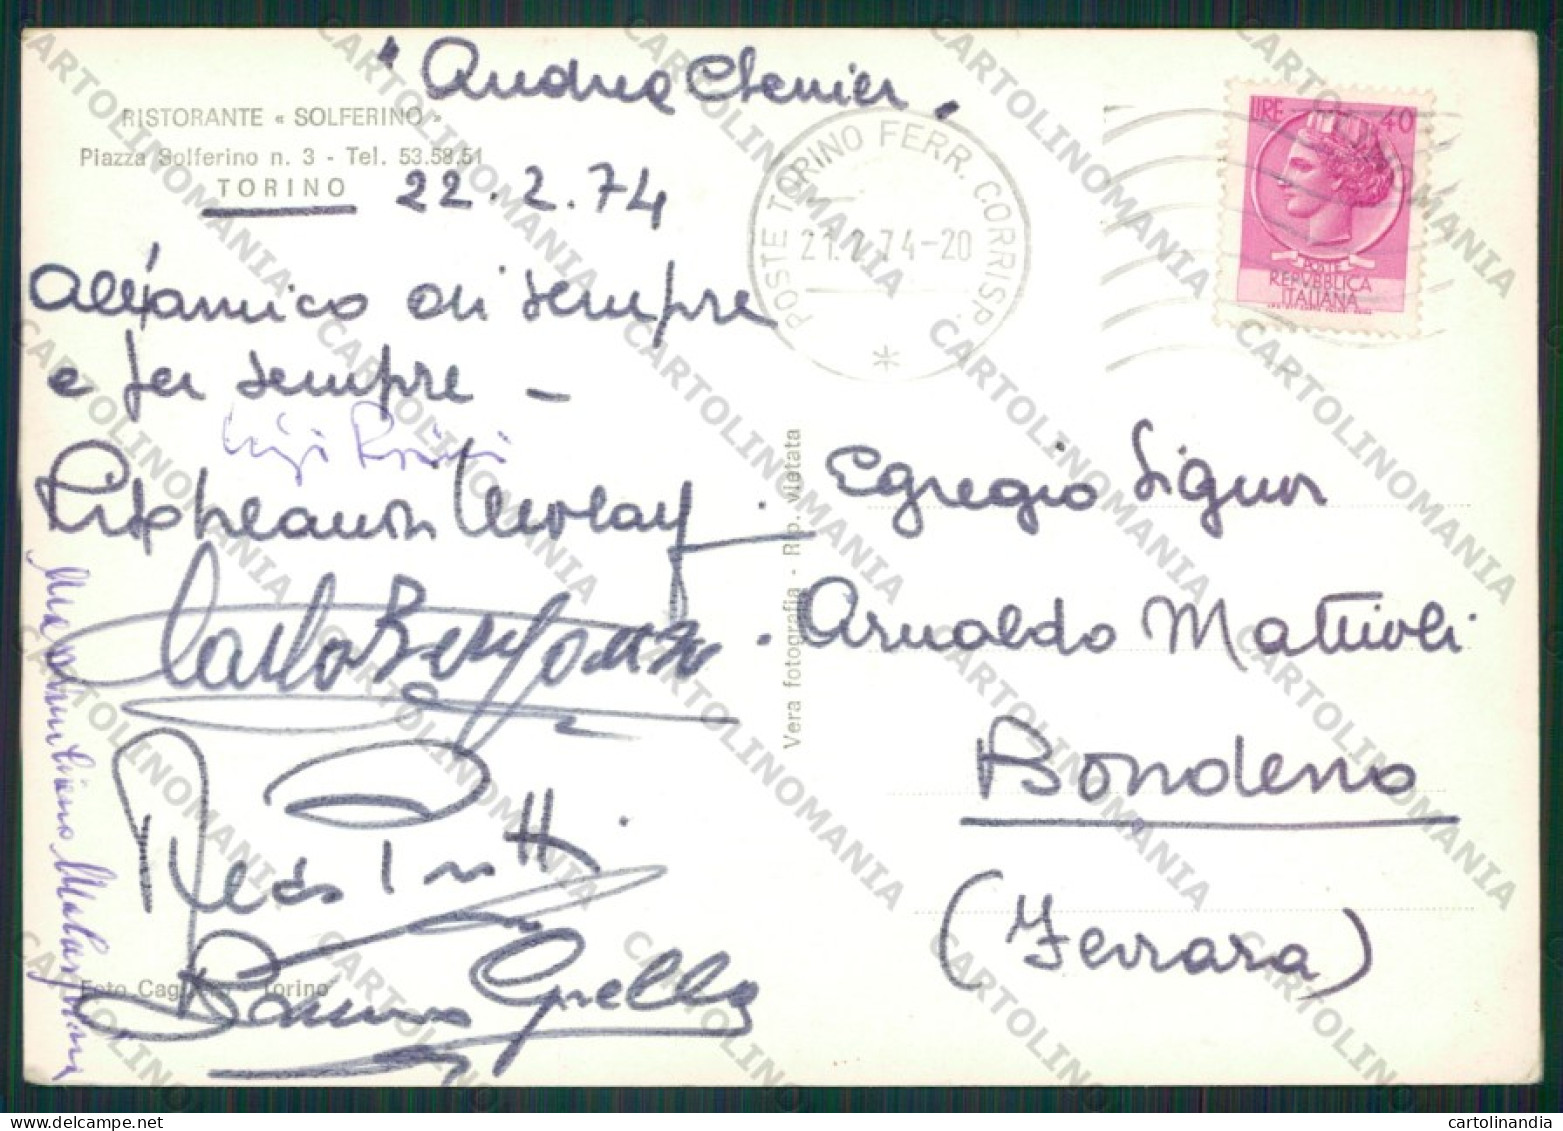 " Andrea Chenier "
RISTORANTE « SOLFERINO »
Piazza Solferino n. 3 - Tel. 53.58.51
TORINO
22.2.74
All'amico di sempre
e per sempre -
Luigi
Carlo Bergonzi
Aldo Protti
Massimiliano Malaspina
Foto Cagliero - Torino
Vera fotografia - Rip. vietata
POSTE TORINO FERR. CORRISP.
21.2.74-20
LIRE 40
POSTE
REPVBBLICA
ITALIANA
Egregio Signor
Arnaldo Mattioli
Bondeno
(Ferrara)
CARTOLINOMANIA
cartolinandia